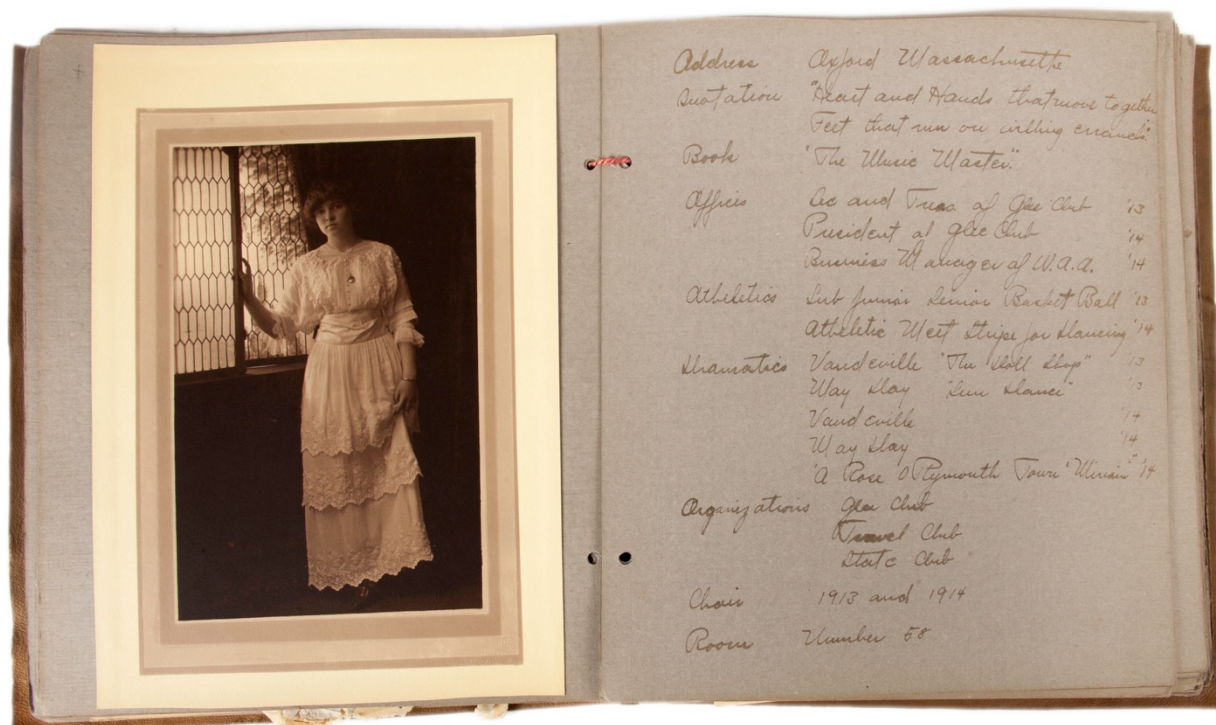 Address Oxford Massachusetts
Quotation "Heart and Hands that move together
Feet that run on willing errands".
Book "The Music Master".
Offices and Treas of Glee Club '13
President of Glee Club '14
Business Manager of W.A.A. '14
Atheletics Sub Junior Senior Basket Ball '13
Atheletic Meet Stripe for Dancing '14
Dramatics Vaudeville "The Doll Shop" '13
May Day "Sun Dance" '13
Vaudeville '14
May Day '14
"A Rose O Plymouth Town" "Miriam" '14
Organizations Glee Club
Travel Club
State Club
Choir 1913 and 1914
Room Number 58